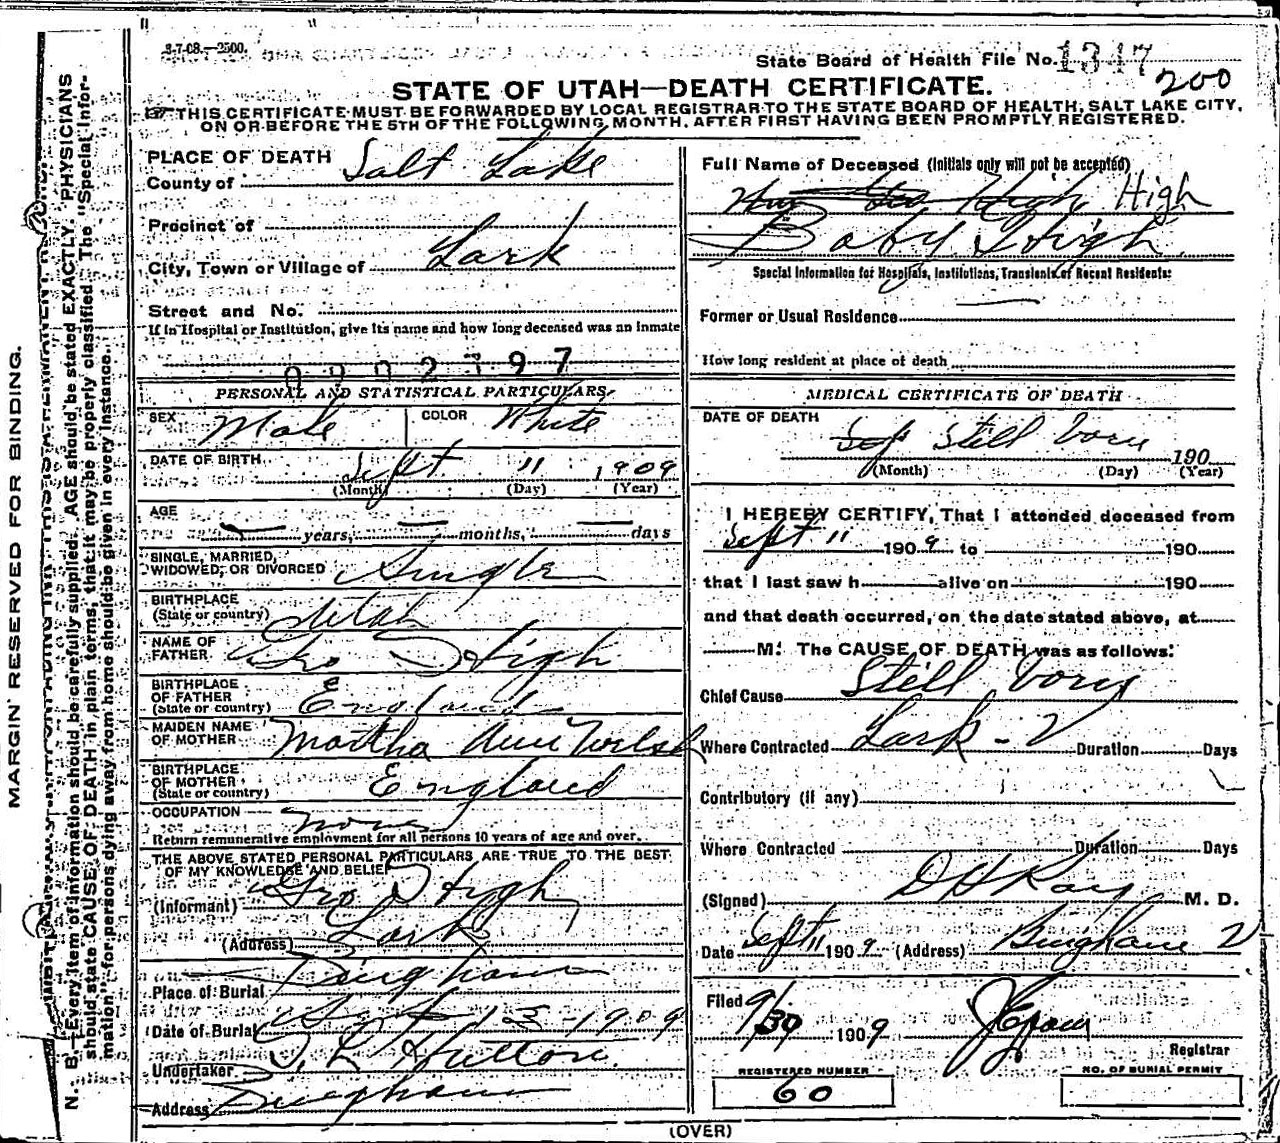 3-7-08.—2500.
State Board of Health File No. 1347
200
STATE OF UTAH—DEATH CERTIFICATE.
THIS CERTIFICATE MUST BE FORWARDED BY LOCAL REGISTRAR TO THE STATE BOARD OF HEALTH, SALT LAKE CITY,
ON OR BEFORE THE 5TH OF THE FOLLOWING MONTH, AFTER FIRST HAVING BEEN PROMPTLY REGISTERED.
MARGIN RESERVED FOR BINDING.
N. B.—Every item of information should be carefully supplied. AGE should be stated EXACTLY. PHYSICIANS
should state CAUSE OF DEATH in plain terms, that it may be properly classified. The "Special Infor-
mation" for persons dying away from home should be given in every instance.
PLACE OF DEATH
County of Salt Lake
Precinct of
City, Town or Village of Lark
Street and No.
If in Hospital or Institution, give its name and how long deceased was an inmate
PERSONAL AND STATISTICAL PARTICULARS
SEX Male COLOR White
DATE OF BIRTH Sept 11 1909
(Month) (Day) (Year)
AGE — years, — months, — days
SINGLE, MARRIED,
WIDOWED, OR DIVORCED Single
BIRTHPLACE
(State or country) Utah
NAME OF
FATHER Geo High
BIRTHPLACE
OF FATHER
(State or country) England
MAIDEN NAME
OF MOTHER Martha Ann Welsh
BIRTHPLACE
OF MOTHER
(State or country) England
OCCUPATION none
Return remunerative employment for all persons 10 years of age and over.
THE ABOVE STATED PERSONAL PARTICULARS ARE TRUE TO THE BEST
OF MY KNOWLEDGE AND BELIEF
(Informant) Geo High
(Address) Lark
Place of Burial Bingham
Date of Burial Sept 13 - 1909
Undertaker
Address Bingham
Full Name of Deceased (Initials only will not be accepted)
High High
Baby High
Special Information for Hospitals, Institutions, Transients or Recent Residents:
Former or Usual Residence
How long resident at place of death
MEDICAL CERTIFICATE OF DEATH
DATE OF DEATH
Sep Still born 190
(Month) (Day) (Year)
I HEREBY CERTIFY, That I attended deceased from
Sept 11 1909 to 190
that I last saw h alive on 190
and that death occurred, on the date stated above, at
M. The CAUSE OF DEATH was as follows:
Chief Cause Still born
Where Contracted Lark - Duration Days
Contributory (if any)
Where Contracted Duration Days
(Signed) M. D.
Date Sept 11 1909 (Address) Bingham
Filed 9/30 1909
Registrar
REGISTERED NUMBER
60
NO. OF BURIAL PERMIT
(OVER)